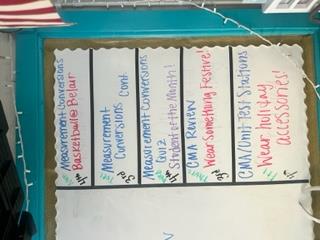 Measurement Conversions
Basketball @ Belair
Measurement
Conversions Cont.
Measurement Conversions
Quiz
Student of the Month!
CMA Review
Wear Something Festive!
CMA/Unit Test Stations
Wear holiday
accessories!